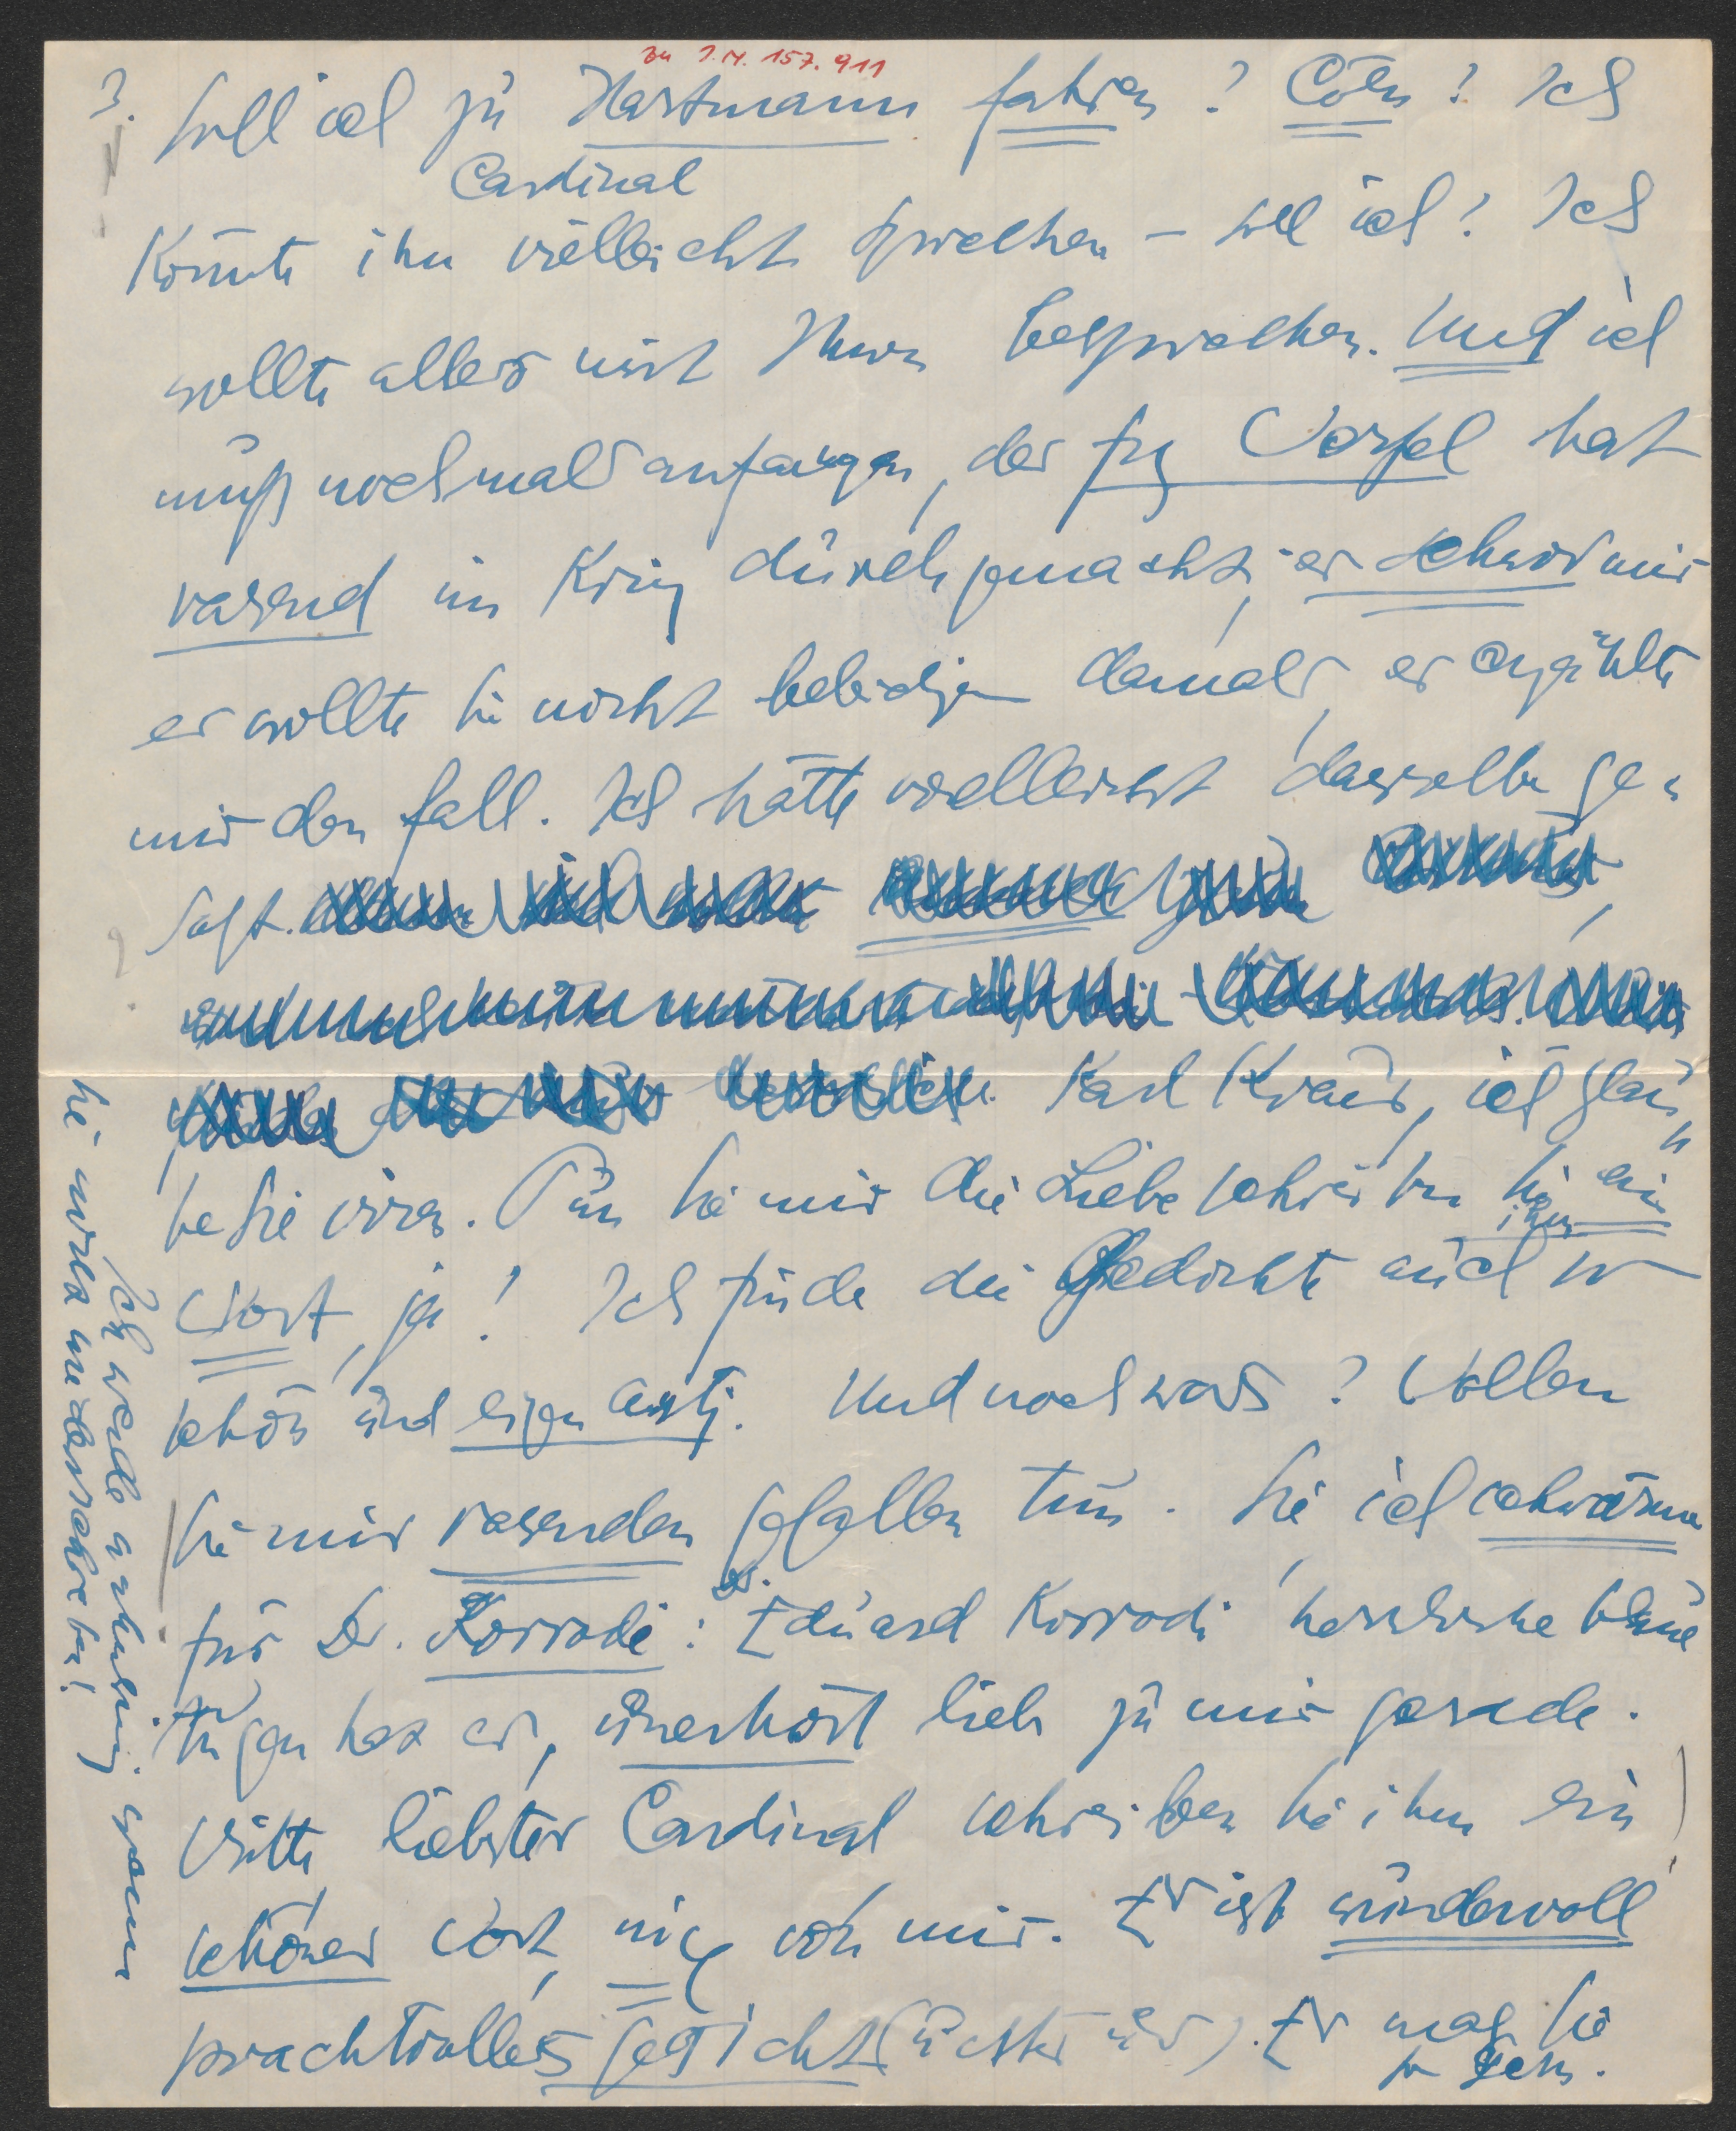 zu I.N. 157.911
3. Soll ich zu Hartmann fahren? Cöln? Ich
Cardinal
könnte ihn vielleicht sprechen – soll ich? Ich
wollte alles mit Ihnen besprechen. Und ich
muß nochmal anfangen, der frz Werfel hat
rasend im Krieg durchgemacht, er schwor mir
er wollte Sie nicht beleidigen damals, er erzählte
mir den Fall. Ich hätte vielleicht dasselbe ge-
sagt.
Karl Kraus, ich glau-
be Sie irren. Tun Sie mir die Liebe schreiben Sie ihm ein
Wort, ja! Ich finde die Gedichte auch so
schön und eigenartig. Und noch was? Wollen
Sie mir rasenden Gefallen tun. Sie ich schwärme
für Dr. Korrodi: Dr. Eduard Korrodi herrliche blaue
Augen hat er, unerhört lieb zu mir gerade.
Bitte liebster Cardinal schreiben Sie ihm ein
schönes Wort, nix von mir. Er ist wundervoll
prachtvolles Gesicht. Er mag Sie
so gern.
Ich werde
Sie mir wiederschreiben!